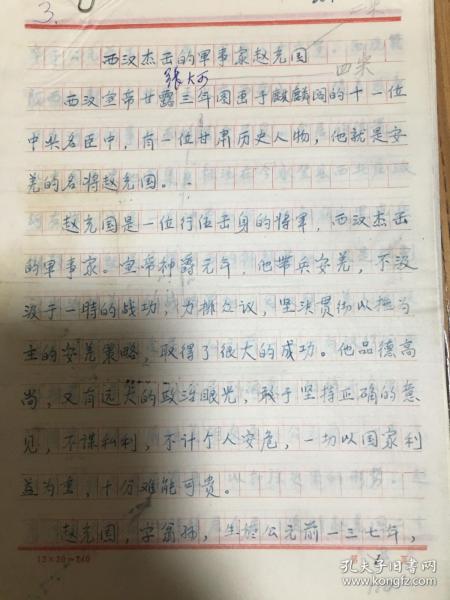 3.
西汉杰出的軍事家赵充国
张大可
四宋
西汉宣帝甘露三年图画于麒麟阁的十一位
中兴名臣中，有一位甘肃历史人物，他就是安
羌的名将赵充国。
赵充国是一位行伍出身的将軍，西汉杰出
的軍事家。宣帝神爵元年，他带兵安羌，不汲
汲于一時的战功，力排众议，坚决贯彻以抚为
主的安羌策略，取得了很大的成功。他品德高
尚，又有远大的政治眼光，敢于坚持正确的意
见，不谋私利，不计个人安危，一切以国家利
益为重，十分难能可贵。
赵充国，字翁孙，生於公元前一三七年，
12×20=240
孔夫子旧书网